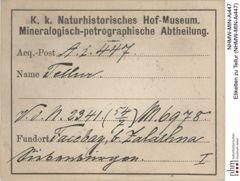 K. k. Naturhistorisches Hof-Museum.
Mineralogisch-petrographische Abtheilung.
Acq.-Post A. i. 447
Name Tellur
V. d. N. 2341 M. 6975
Fundort Facebay, b. Zalathna
Siebenbürgen. I
NHMW-MIN-Ai447
Etiketten zu Tellur (NHMW-MIN-Ai447)
nhm